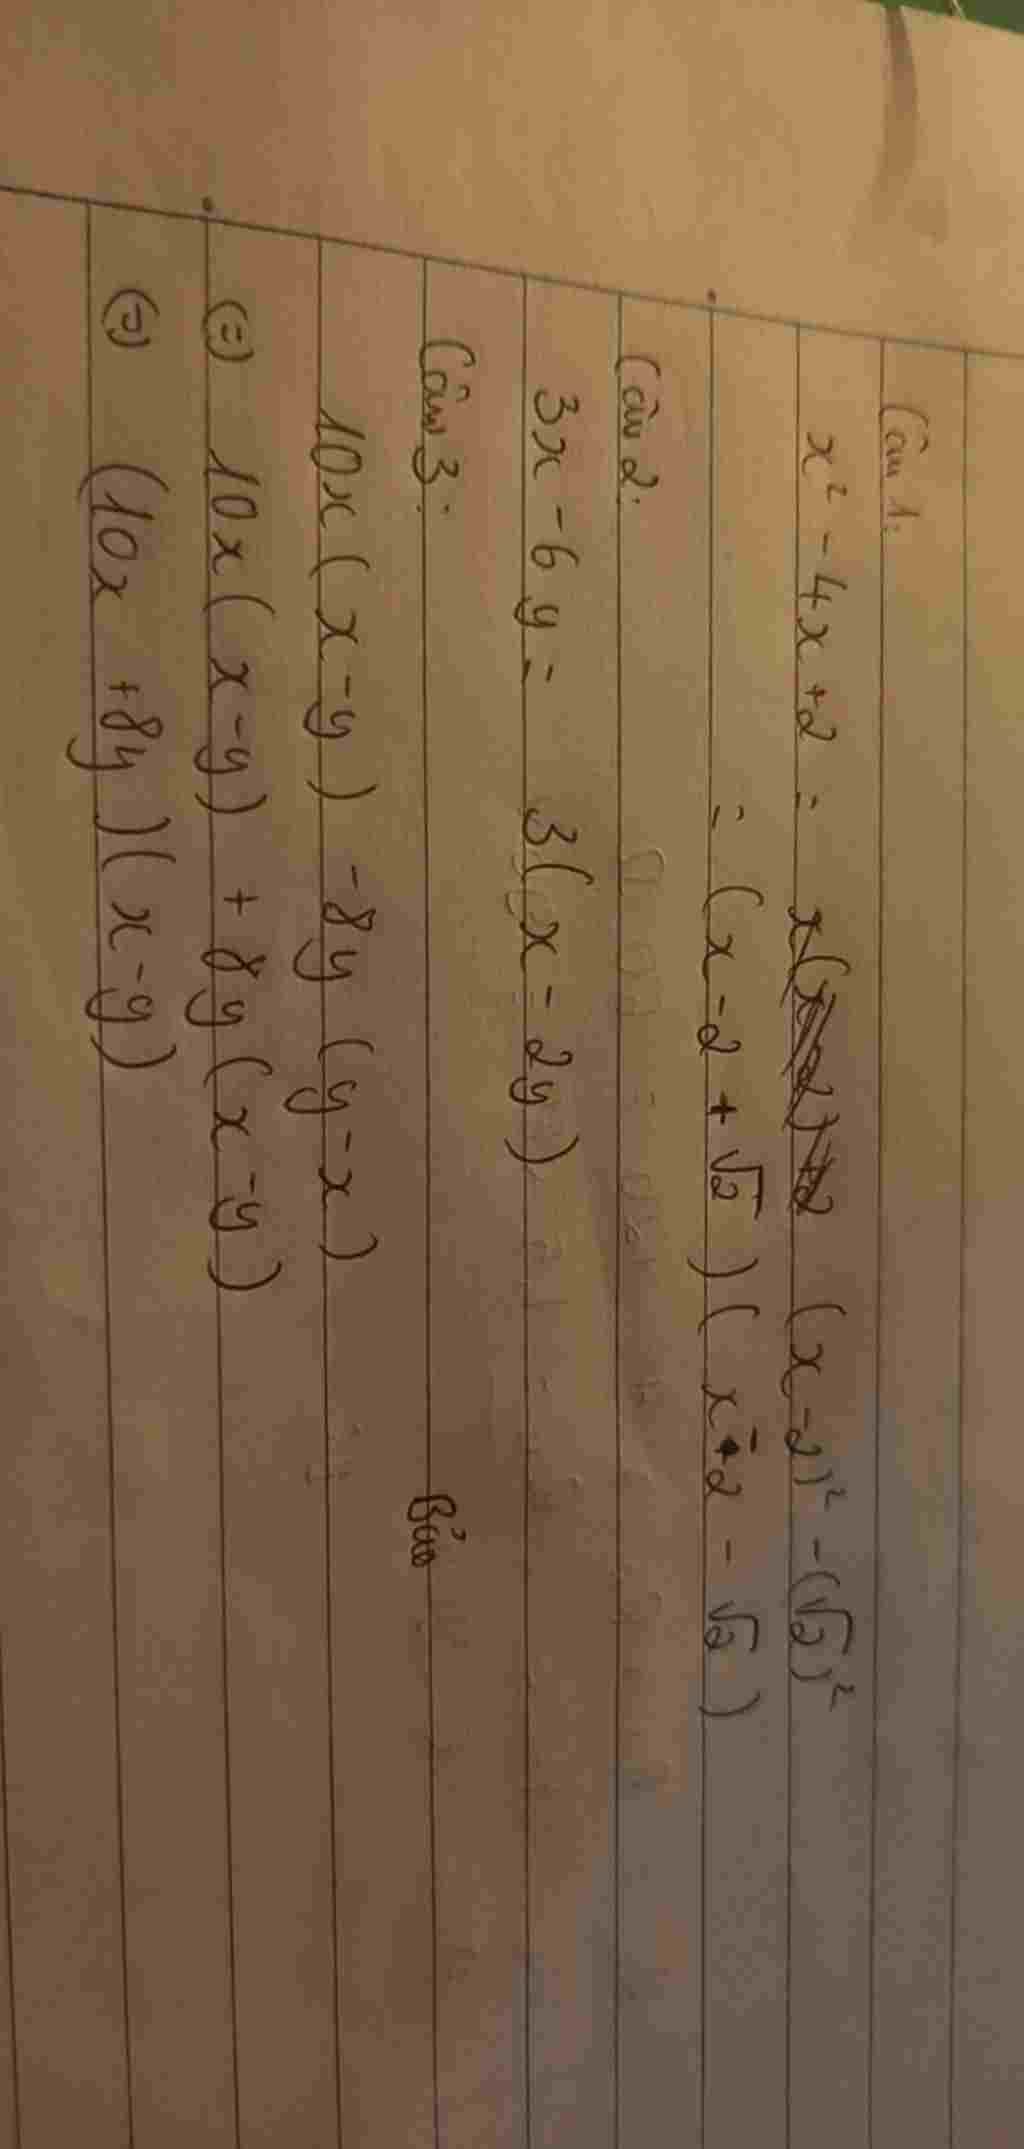 Câu 1:
x² - 4x + 2 = (x - 2)² - (√2)²
= (x - 2 + √2)(x - 2 - √2)
Câu 2:
3x - 6y = 3(x - 2y)
Câu 3:
10x(x - y) - 8y(y - x)
(=) 10x(x - y) + 8y(x - y)
(=) (10x + 8y)(x - y)